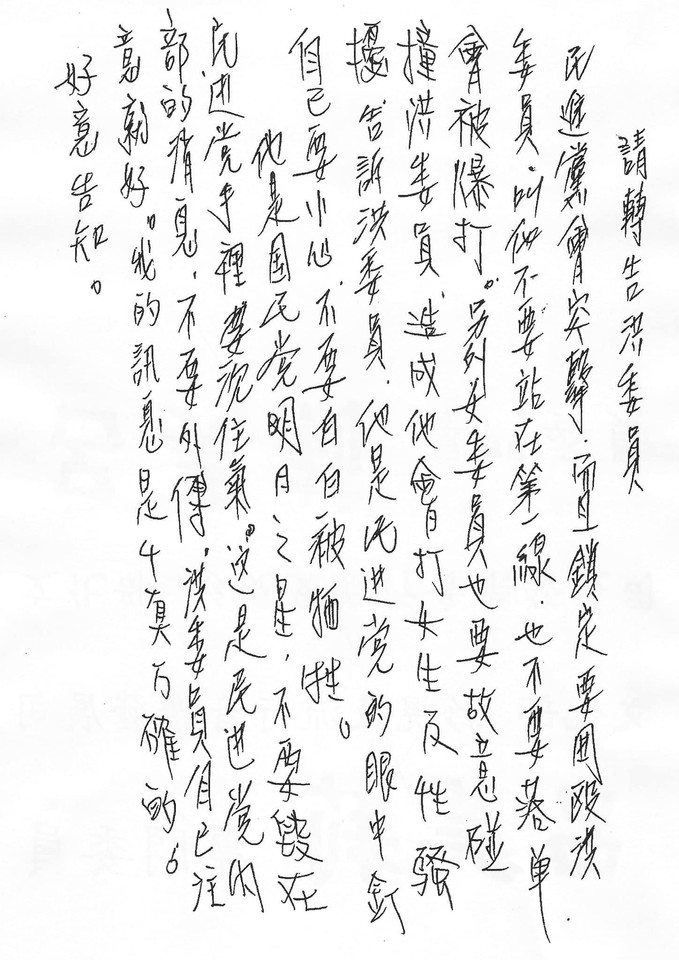 請轉告洪委員
民進黨會突擊．而且鎖定要围毆洪
委員．叫他不要站在第一線．也不要落單．
會被爆打。另外女委員也要故意碰
撞洪委員．造成他會打女生及性騷
擾．告訴洪委員．他是民进党的眼中釘
自己要小心．不要白白被犧牲。
他是国民党明日之星．不要毀在
民进党手裡要沉住氣。这是民进党内
部的消息．不要外傳．洪委員自已注
意就好。我的訊息是千真万確的。
好意告知。